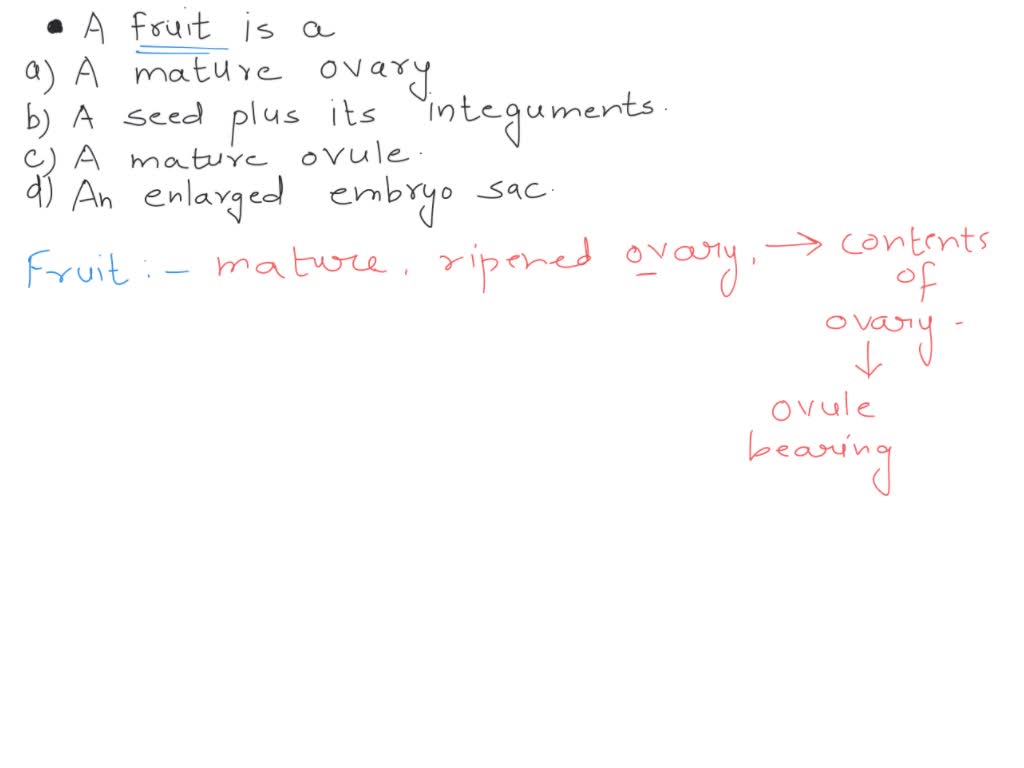 • A fruit is a
a) A mature ovary
b) A seed plus its integuments.
c) A mature ovule.
d) An enlarged embryo sac.
Fruit :- mature, ripened ovary, → contents
of
ovary -
↓
ovule
bearing